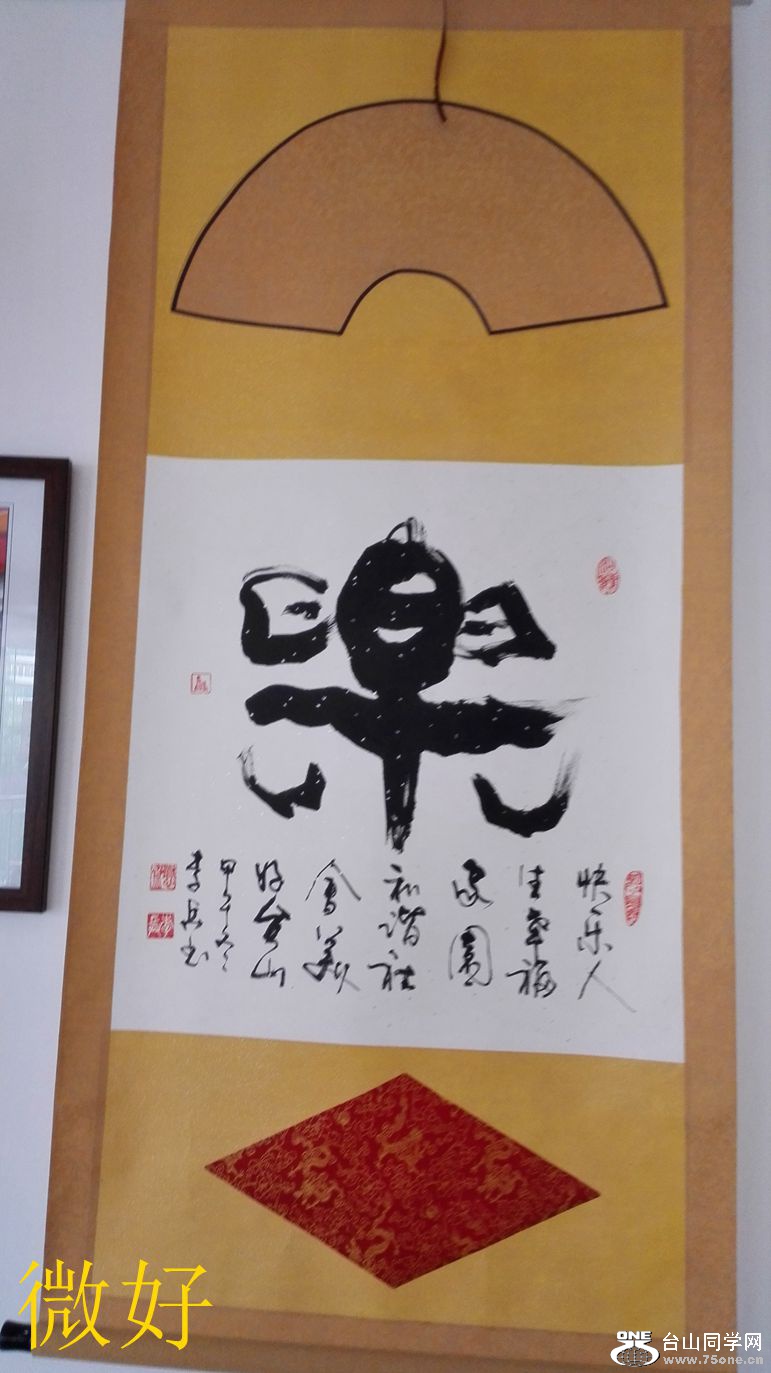 樂
快乐人
生幸福
家園
和谐社
會
好台山
甲午冬
李 书
微好
ONE 台山同学网
www.75one.cn